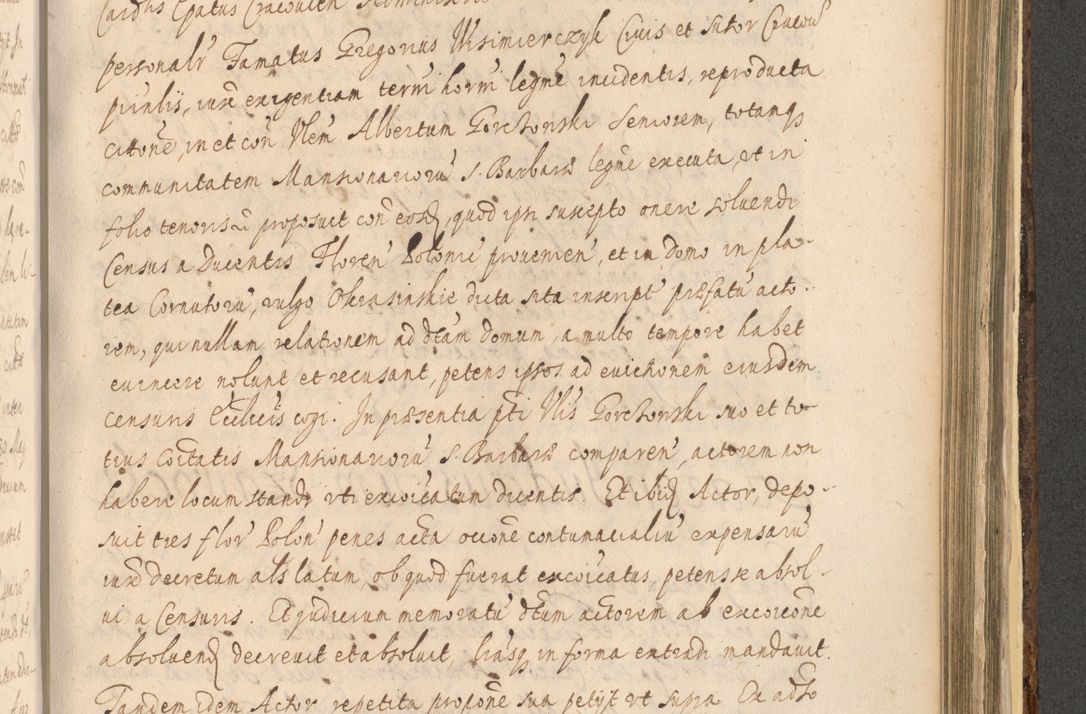 personalr Famatus Gregorius Wisimierczyk Civis et Sutor Cracov
piinlis, iuxe exigentiam termi horni legme incidentis, reproducta
cittone, in et con Vlem Albertum Gorchorski Seniorem, totamqs
communitatem Mansionarioru S. Barbaræ legme executa, et in
folio tenoris proposuit con eosd, quod ipsi suscepto onere soluendi
Census a Ducentis Floren Polonic prouenien, et in domo in pla-
tea Cornutoru, vulgo Okrasinskie dicta sita inscript præfatu acto-
rem, qui nullam relationem ad dtam domum, a multo tempore habet
euincere nolunt et recusant, petens ipsos ad euictionem eiusdem
censuris Ecclicis cogi. In præsentia pti Vlis Gorchorski suo et to-
tius Coitatis Mansionarioru S. Barbaræ comparen, actorem non
habere locum standi vti excoicatum dicentis. Et ibid Actor, depo-
suit tres flor Polon penes acta occone contumacialiu expensaru
iuxe decretum als latum, ob quod fuerat excoicatus, petens se absol-
ui a Censuris. Et judicium memoratu dtum actorem ab excoicone
absoluend decreuit et absoluit, lrasq in forma extradi mandauit.
Tandem idem Actor repetita propone sua petijt vt supra Ex adso